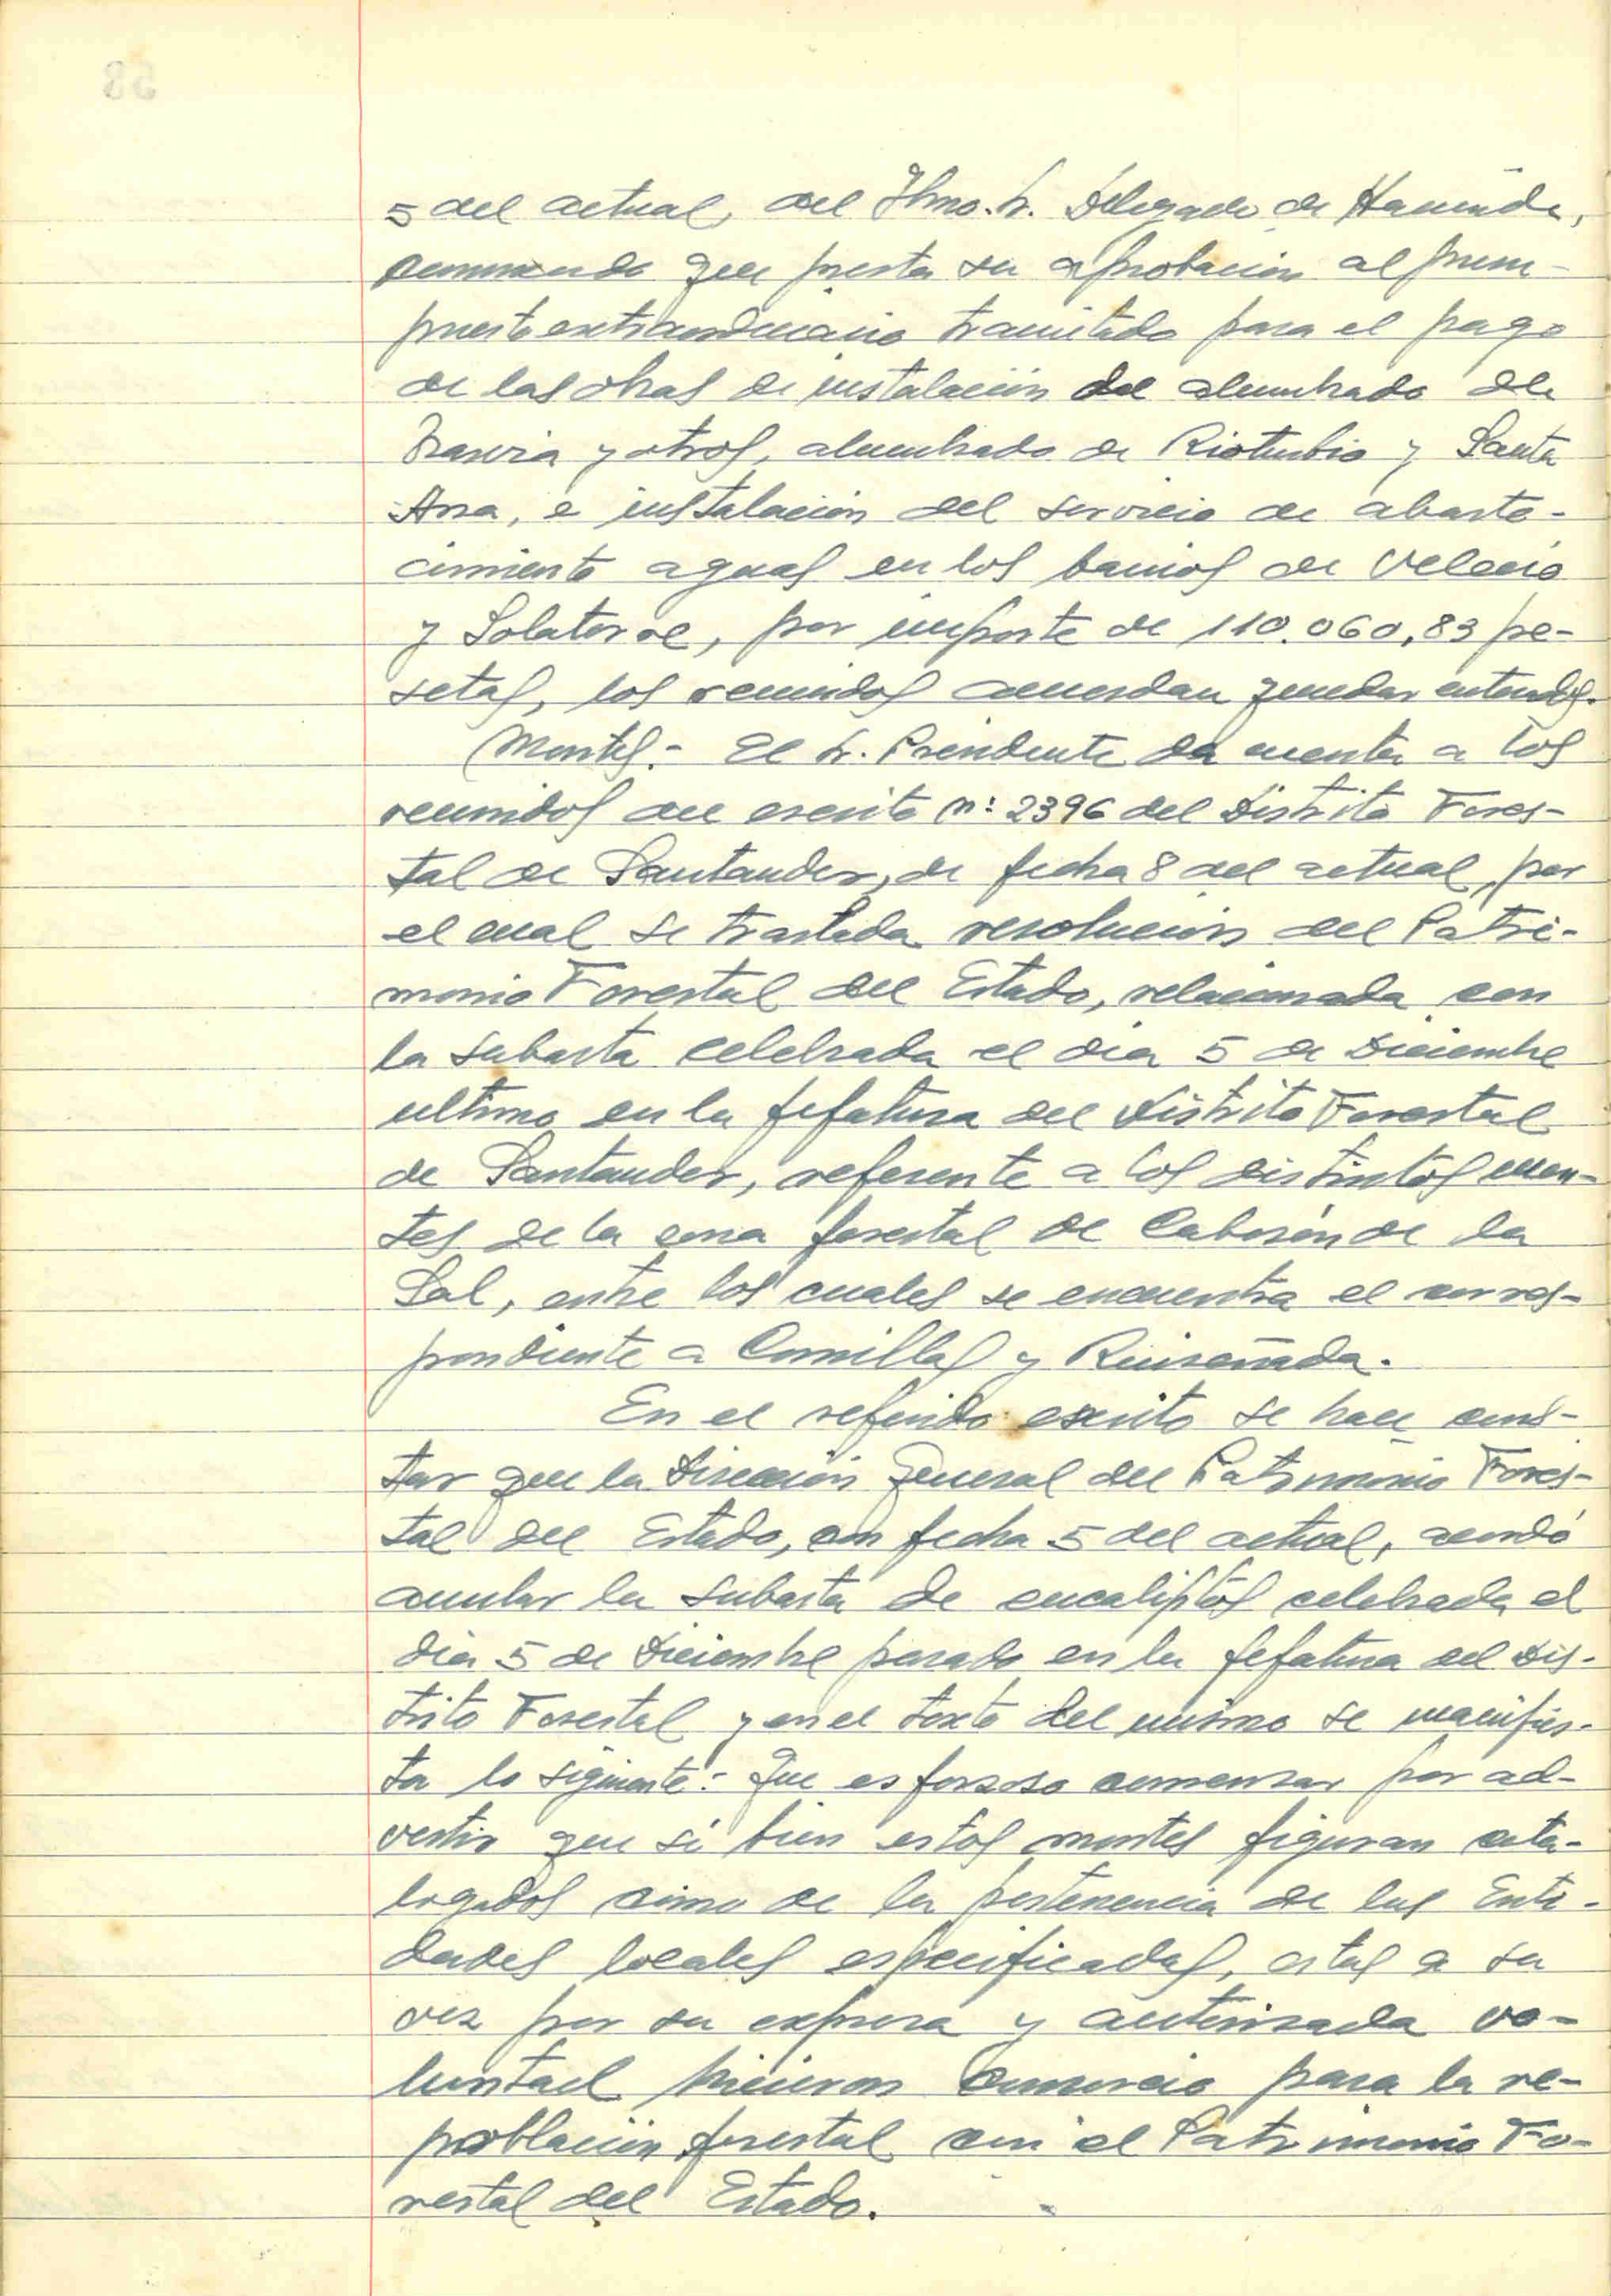 5 del actual, del Ilmo. Sr. Delegado de Hacienda,
comunicando que presta su aprobación al presu-
puesto extraordinario tramitado para el pago
de las obras de instalación del alumbrado de la
Travía y otros, alumbrado de Rioturbio y Santa
Ana, e instalación del servicio de abaste-
cimiento aguas en los barrios de Velecio
y Solatorre, por importe de 110.060,83 pe-
setas, los reunidos acuerdan quedar enterados.
Montes.- El Sr. Presidente da cuenta a los
reunidos del escrito nº: 2396 del Distrito Fores-
tal de Santander, de fecha 8 del actual, por
el cual se traslada resolución del Patri-
monio Forestal del Estado, relacionada con
la subasta celebrada el día 5 de Diciembre
ultimo en la Jefatura del Distrito Forestal
de Santander, referente a los distintos mon-
tes de la zona forestal de Cabezón de la
Sal, entre los cuales se encuentra el corres-
pondiente a Comillas y Ruiseñada.
En el referido escrito se hace cons-
tar que la Dirección General del Patrimonio Fores-
tal del Estado, con fecha 5 del actual, acordó
anular la subasta de eucaliptos celebrada el
día 5 de Diciembre pasado en la Jefatura del Dis-
trito Forestal y en el texto del mismo se manifies-
ta lo siguiente: Que es forzoso comenzar por ad-
vertir que si bien estos montes figuran cata-
logados como de la pertenencia de las Enti-
dades locales especificadas, estas a su
vez por su expresa y autorizada vo-
luntad hicieron consorcio para la re-
población forestal con el Patrimonio Fo-
restal del Estado.
58